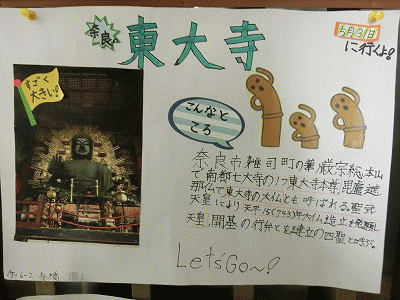 奈良
東大寺
5月31日
に行くよ!
すごく
大きい!
こんなと
ころ
奈良市雑司町の華厳宗総本山
で南都七大寺の1つ東大寺本尊毘盧遮
那仏で東大寺の大仏とも呼ばれる聖武
天皇により天平15(743)年大仏造立を発願
天皇、開基の行弁とを建立の四聖と呼ぶ。
Let's Go〜!
6-2